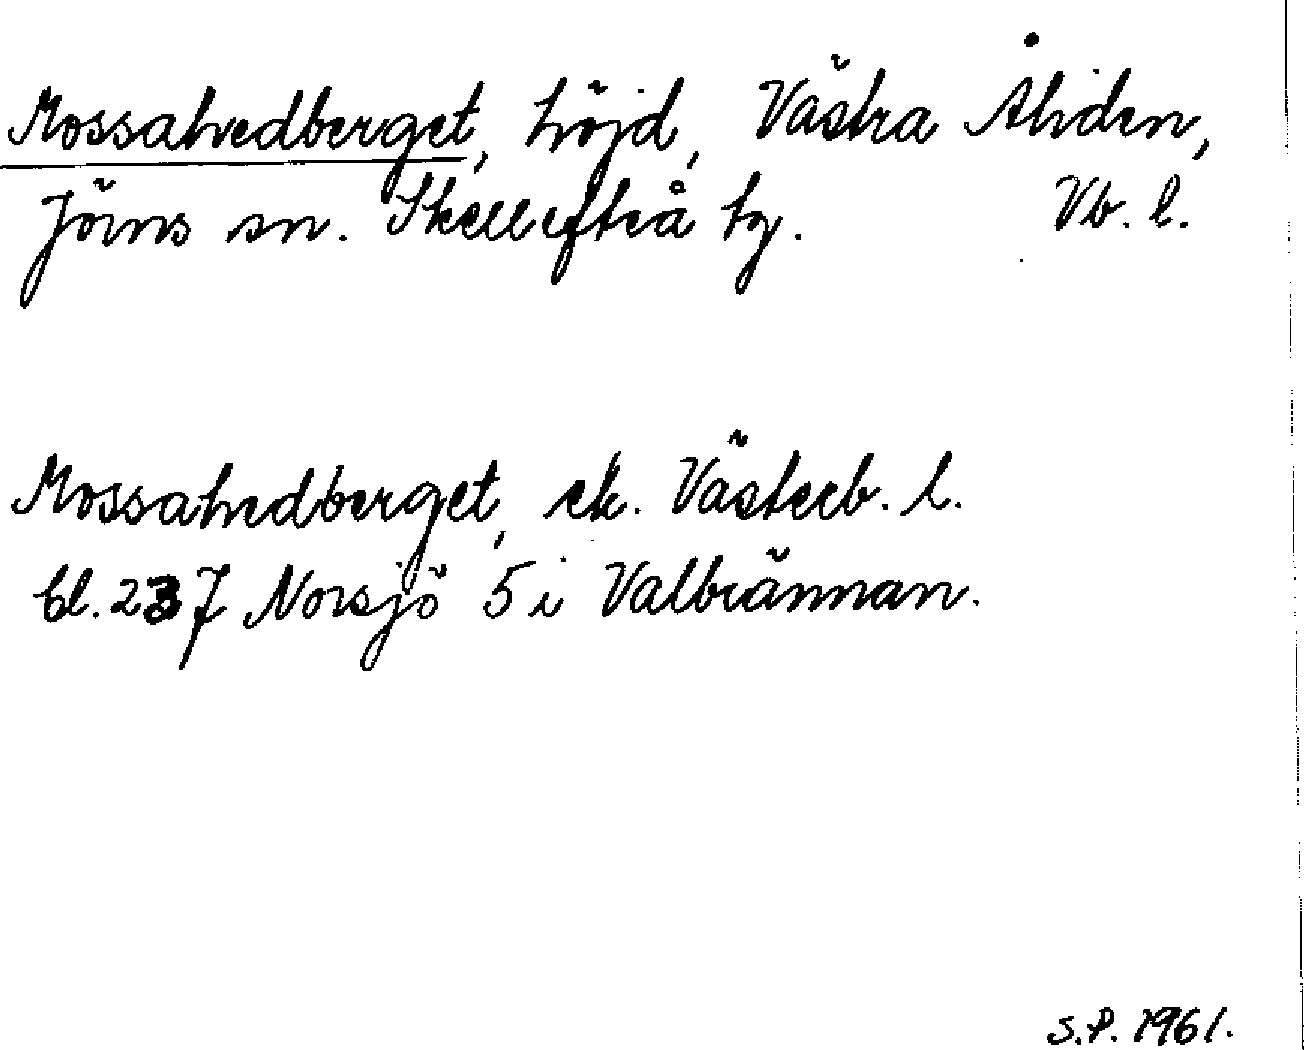 Mossahedberget, höjd, Västra Åliden,
Jörns sn. Skellefteå tg. Vb. l.
Mossahedberget, ek. Västerb. l.
bl. 237 Norsjö 5 i Valbrännan.
S.P. 1961.